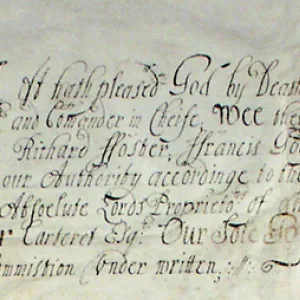 It hath pleased God by Death
and Com̃ander in Cheife, Wee the
Richard ffoster, ffrancis Go
our Authority accordinge to the
Absolute Lords Proprieto.rs of
Carteret Esq.r Our Sole
ommission Vnder written,